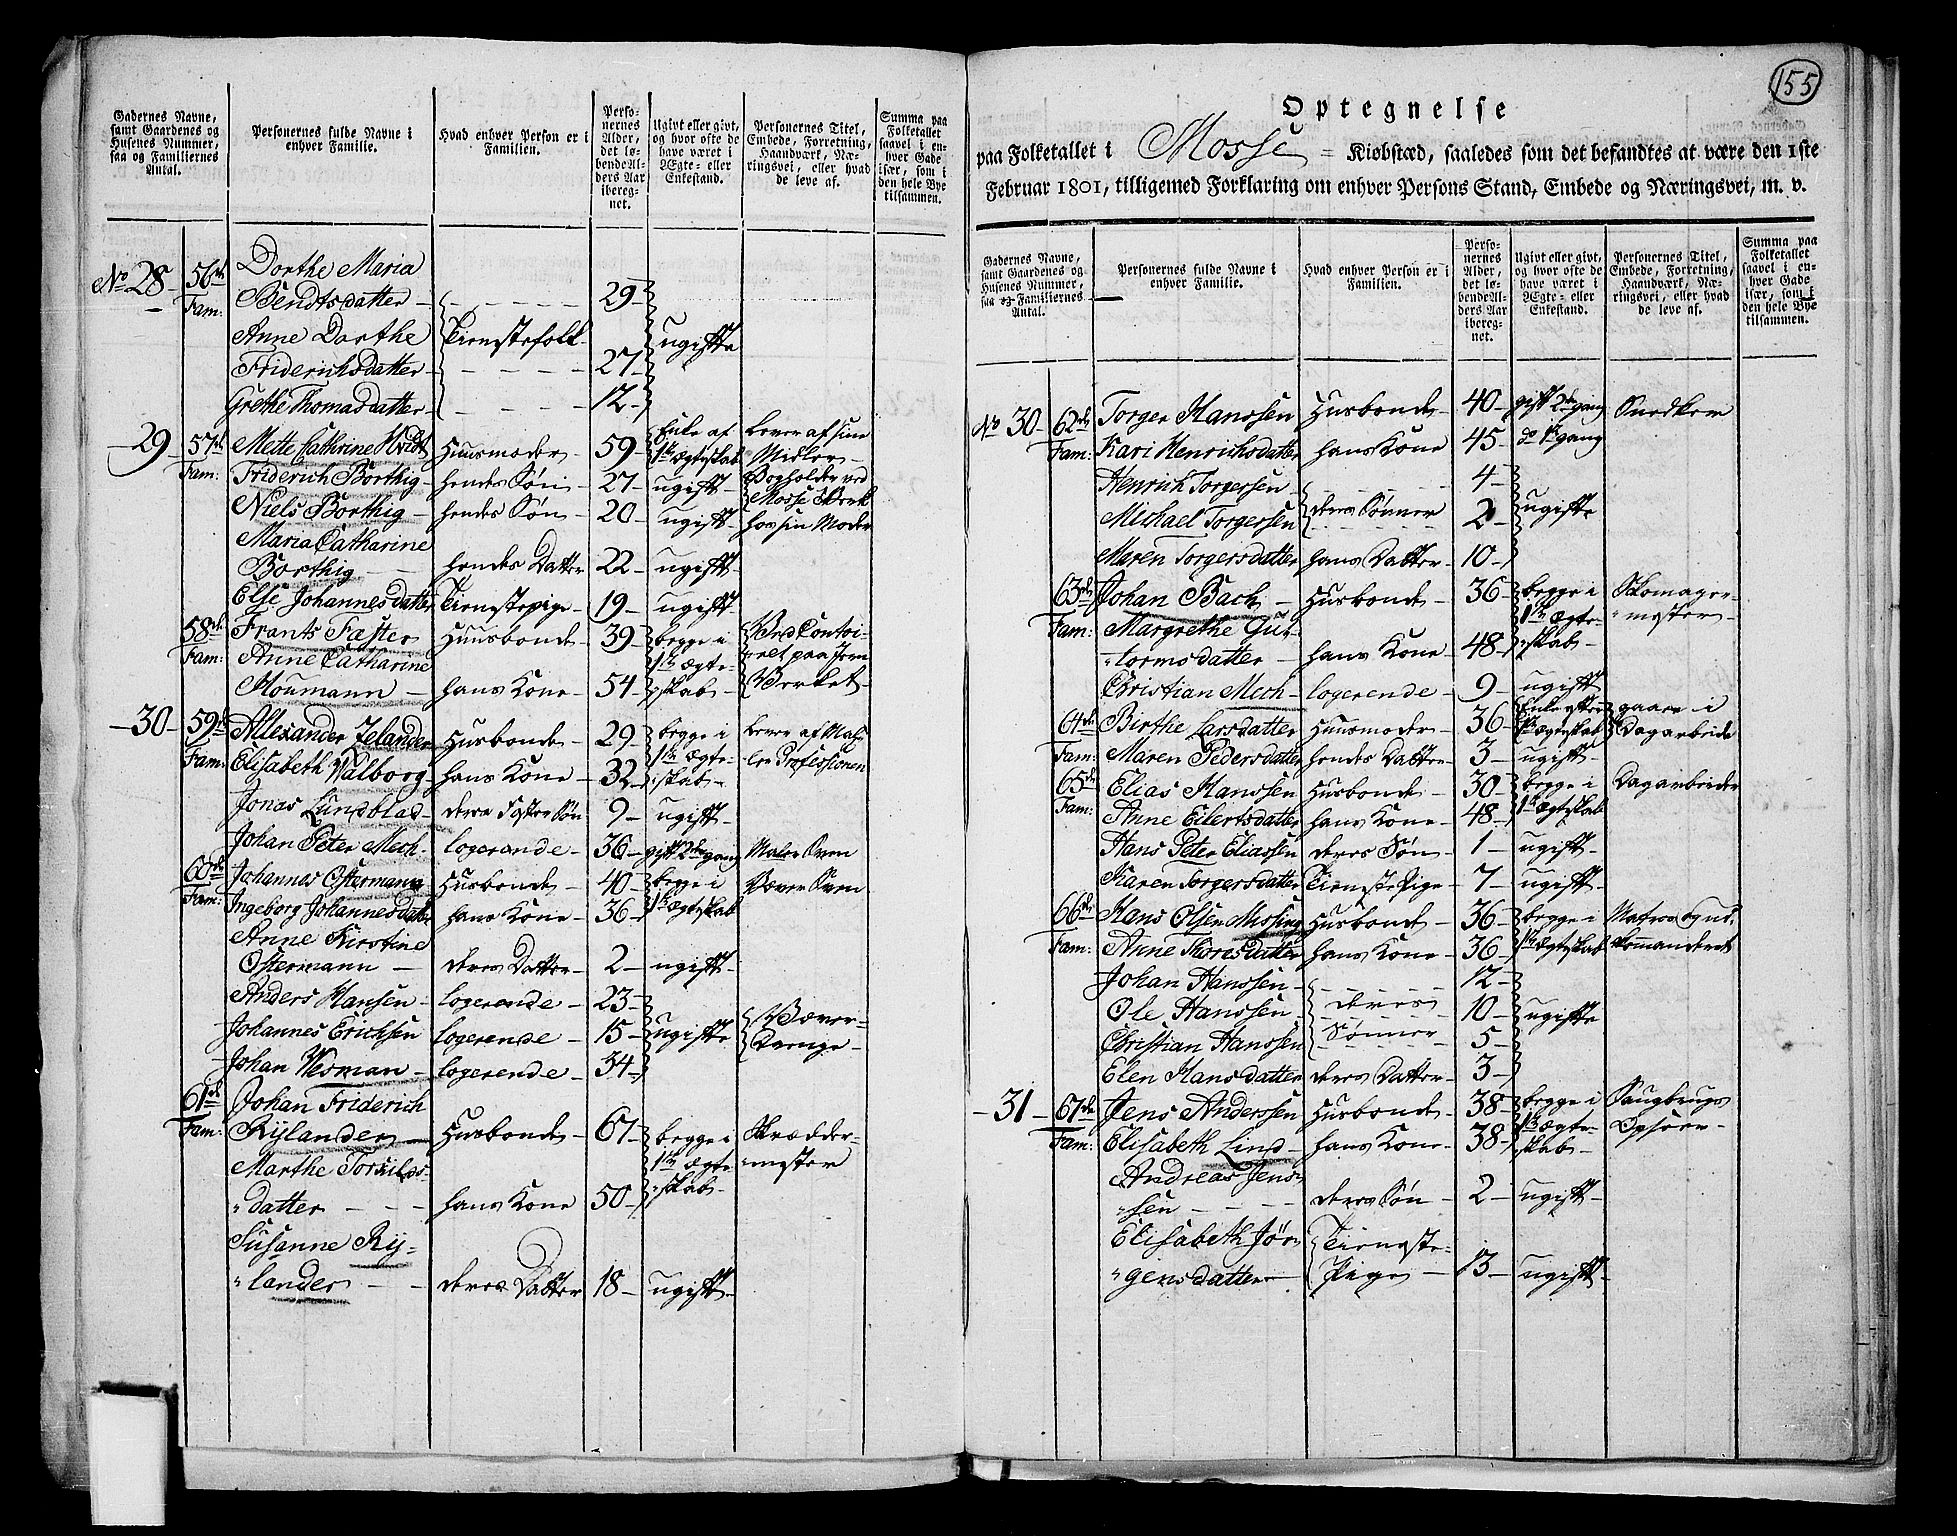 Gadernes Navne, samt Gaardenes og Husenes Nummer, saa og Familiernes Antal.
Personernes fulde Navne i enhver Familie.
Hvad enhver Person er i Familien.
Personernes Alder, det løbende Alders Aar iberegnet.
Ugivt eller givt, og hvor ofte de have været i Ægte- eller Enkestand.
Personernes Titel, Embede, Forretning, Haandværk, Næringsvei, eller hvad de leve af.
Summa paa Folketallet saavel i enhver Gade især, som i den hele Bye tilsammen.
No 28 56de Fam: Dorthe Maria
Bendtsdatter 29
Anne Dorthe Tienestefolk ugifte
Friderichsdatter 27
Grethe Thomasdatter 12
29 57de Fam: Mette Cathrine Hvidt Huusmoder 59 Enke af 1te Ægteskab Lever af sine Midler
Friderich Borthig hendes Søn 27 ugift Bogholder ved Mosse Verk
Niels Borthig hendes Søn 20 ugift hos sin Moder
Maria Catharine
Borthig hendes Datter 22 ugift
Else Johannesdatter Tienestepige 19 ugift
58de Fam: Frants Faster Huusbonde 39 begge i 1te Ægteskab Ved Contoiret paa Jern Verket
Anne Catharine
Moumann hans Kone 54
30 59de Fam: Allexander Zelander Husbonde 29 begge i 1te Ægteskab Lever af Maler Professionen
Elisabeth Valborg hans Kone 32
Jonas Lundblad deres Foster Søn 9 ugift
Johan Peter Mech logerende 36 gift 2de gang Maler Sven
60de Fam: Johannes Ostermann Husbonde 40 begge i 1te Ægteskab Væver Sven
Ingeborg Johannesdatter hans Kone 36
Anne Kirstine
Ostermann deres Datter 2 ugift
Anders Hansen logerende 23
Johannes Erichsen logerende 15 ugifte Væver Drenge
Johan Wesman logerende 34
61de Fam: Johan Friderich
Rylander Husbonde 67 begge i 1te Ægteskab Skrædder mester
Marthe Torkilds
datter hans Kone 50
Susanne Ry
lander deres Datter 18 ugift
155
Optegnelse
paa Folketallet i Mosse Kiøbstæd, saaledes som det befandtes at være den 1ste
Februar 1801, tilligemed Forklaring om enhver Persons Stand, Embede og Næringsvei, m. v.
Gadernes Navne, samt Gaardenes og Husenes Nummer, saa og Familiernes Antal.
Personernes fulde Navne i enhver Familie.
Hvad enhver Person er i Familien.
Personernes Alder, det løbende Alders Aar iberegnet.
Ugivt eller givt, og hvor ofte de have været i Ægte- eller Enkestand.
Personernes Titel, Embede, Forretning, Haandværk, Næringsvei, eller hvad de leve af.
Summa paa Folketallet saavel i enhver Gade især, som i den hele Bye tilsammen.
No 30 62de Fam: Torger Hanssen Husbonde 40 gift 2de gang Snedker
Kari Henrichsdatter hans Kone 45 do 1te gang
Henrich Torgersen 4
Michael Torgersen deres Sønner 2 ugifte
Maren Torgersdatter hans Datter 10
63de Fam: Johan Bach Husbonde 36 begge i 1te Ægteskab Skomager mester
Margrethe Gu
tormsdatter hans Kone 48
Christian Mech logerende 9 ugift
64de Fam: Birthe Larsdatter Huusmoder 36 Enke efter 1te Ægteskab gaaer i Dagarbeide
Maren Pedersdatter hendes Datter 3 ugift
65de Fam: Elias Hanssen Husbonde 30 begge i 1te Ægteskab Dagarbeider
Anne Eilertsdatter hans Kone 48
Hans Peter Eliassen deres Søn 1 ugift
Karen Torgersdatter Tieneste Pige 7 ugift
66de Fam: Hans Olsen Mossing Husbonde 36 begge i 1te Ægteskab Matros
Anne Thoresdatter hans Kone 36
Johan Hanssen 12
Ole Hanssen deres 10 ugifte
Christian Hanssen Sønner 5
Elen Hansdatter deres Datter 3
31 67de Fam: Jens Anderssen Husbonde 38 begge i 1te Ægteskab Saugbrugs Opsøer
Elisabeth Lind hans Kone 38
Andreas Jens
sen deres Søn 2 ugift
Elisabeth Jør Tieneste
gensdatter Pige 13 ugift